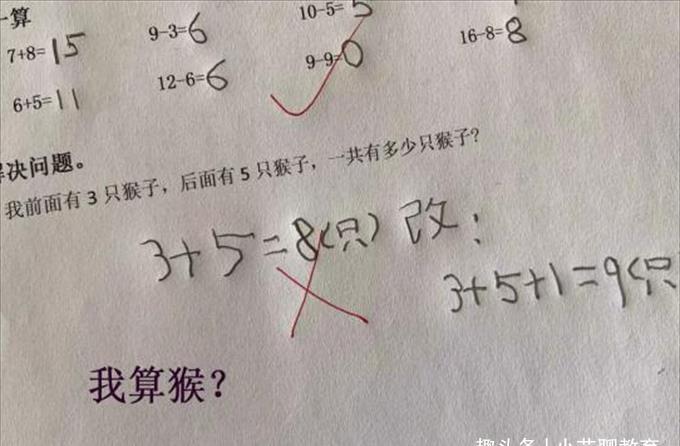 一算
7+8=15
9-3=6
10-5=5
16-8=8
6+5=11
12-6=6
9-9=0
解决问题。
我前面有3只猴子，后面有5只猴子，一共有多少只猴子？
3+5=8(只) 改：
3+5+1=9(只
我算猴？